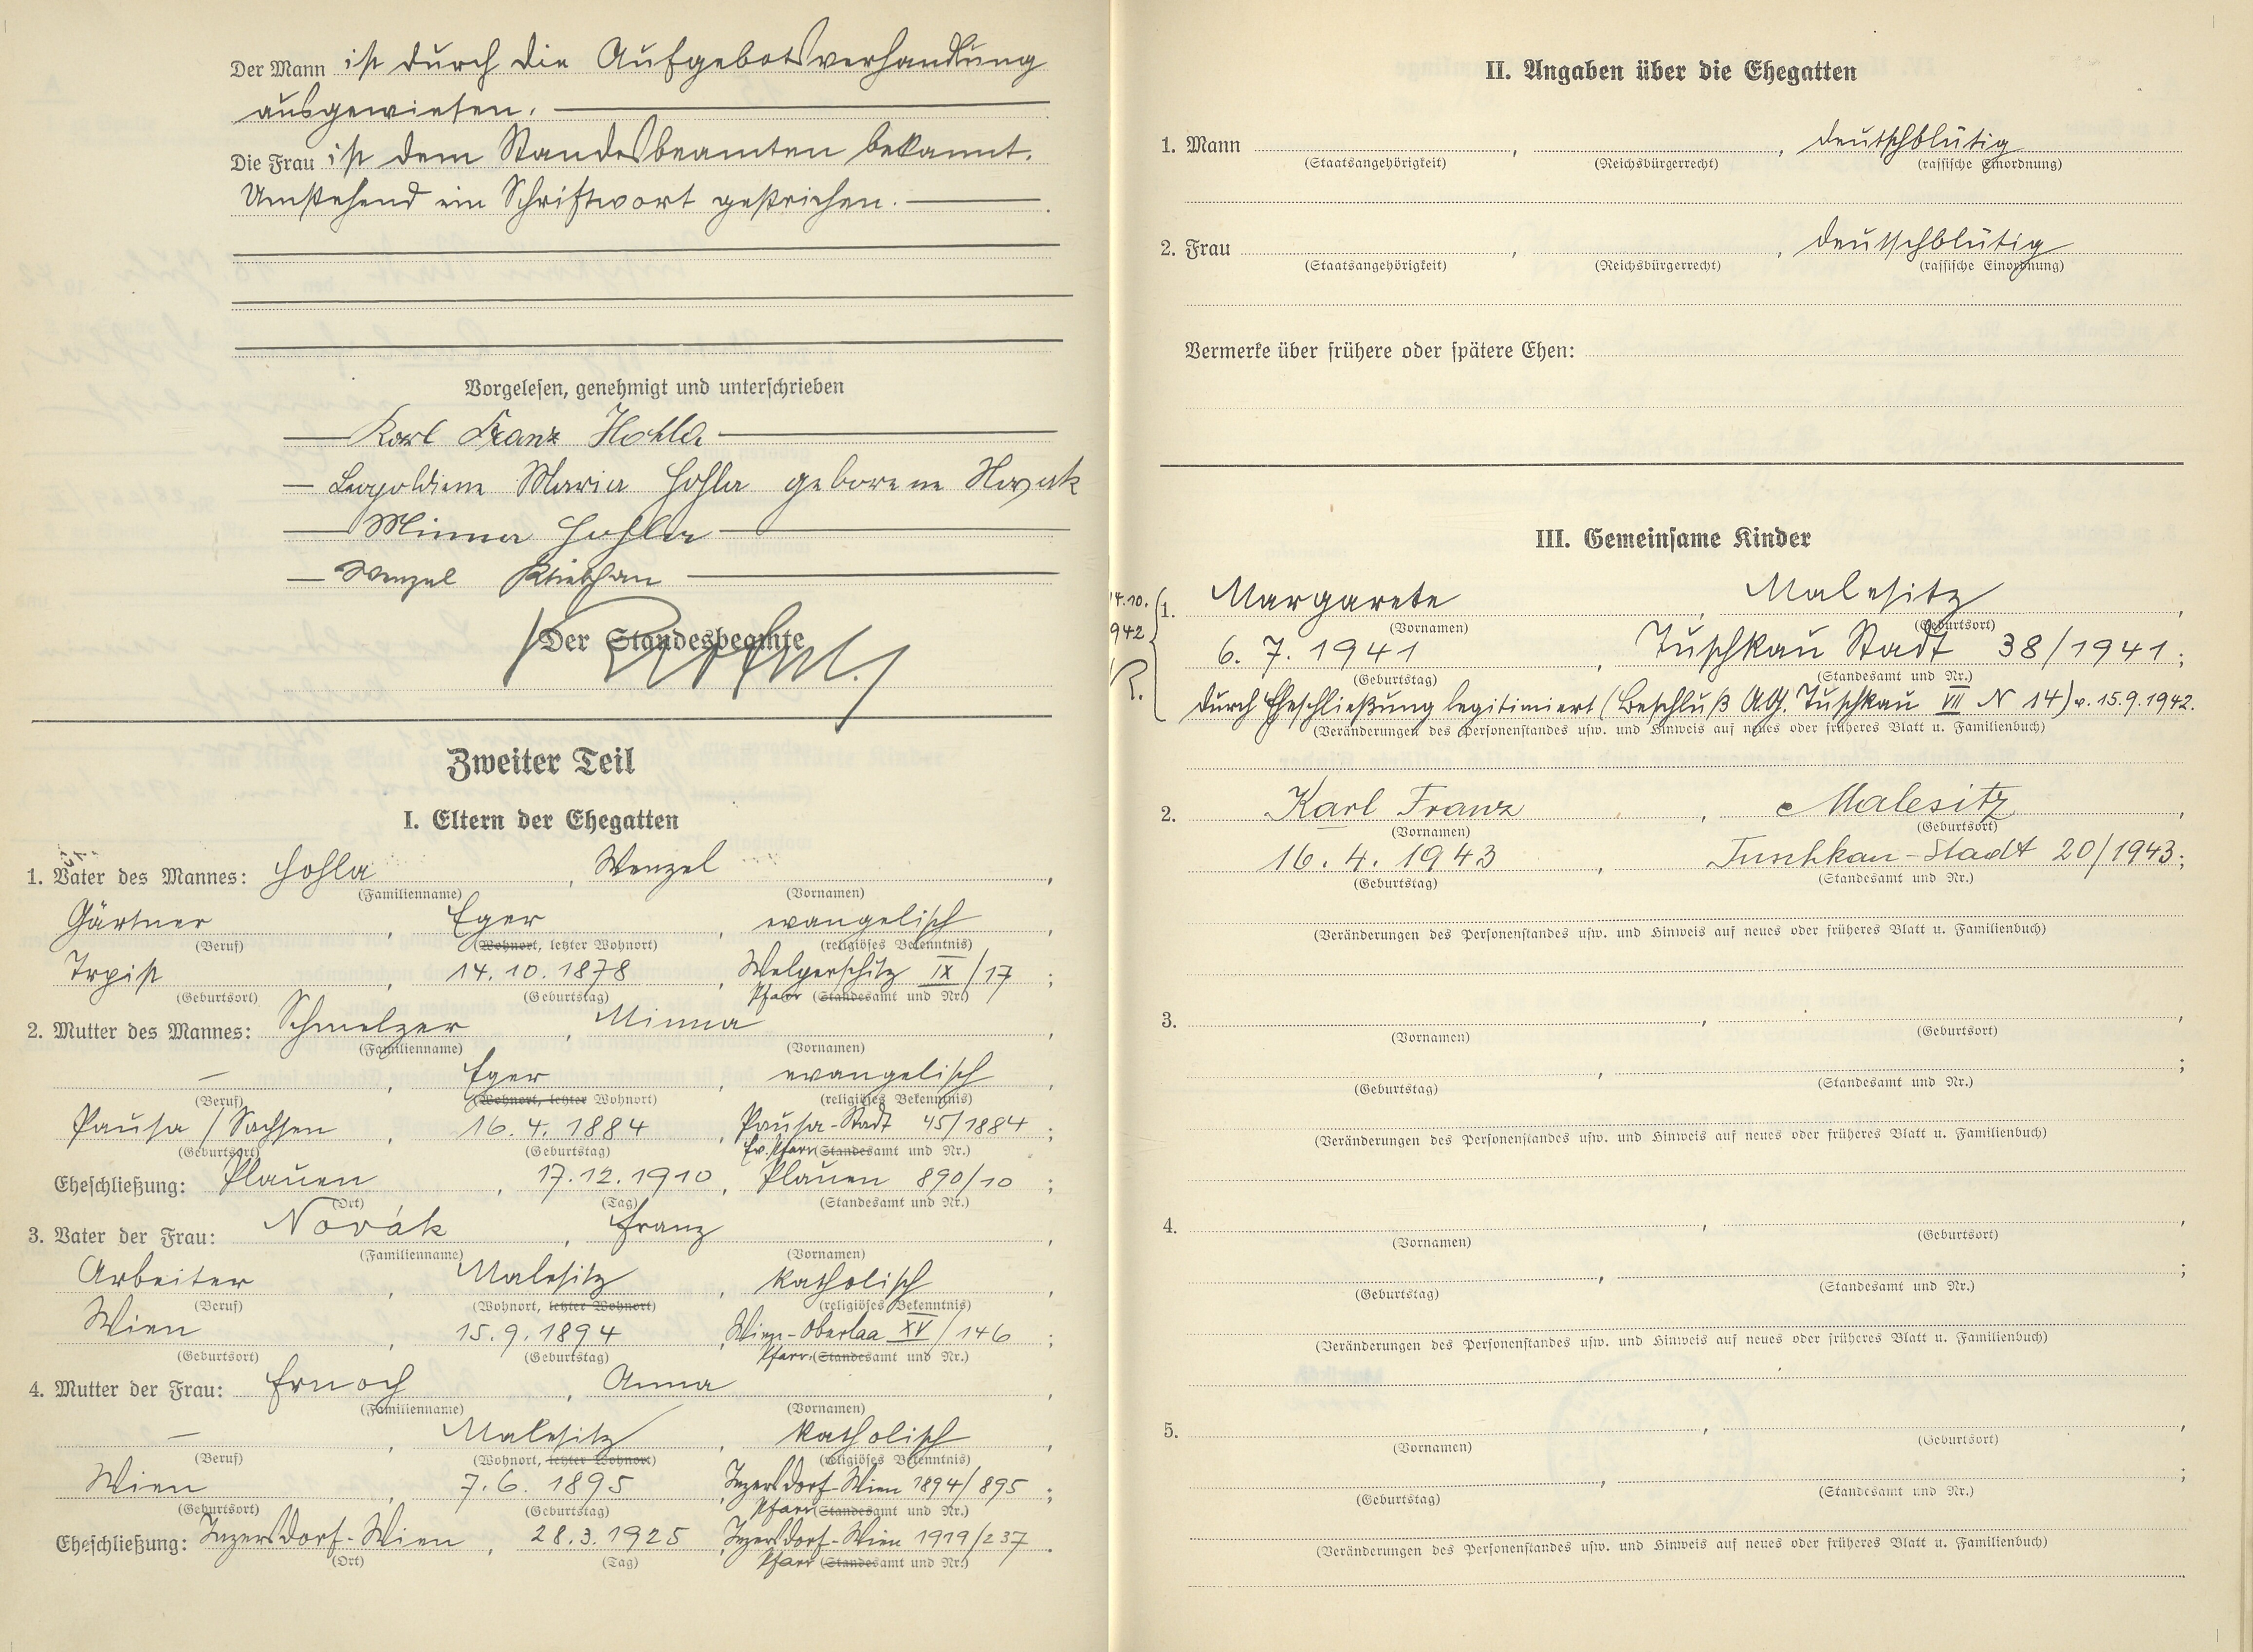 Der Mann ist durch die Aufgebotsverhandlung
ausgewiesen.
Die Frau ist dem Standesbeamten bekannt.
Umstehend ein Schriftwort gestrichen.
Vorgelesen, genehmigt und unterschrieben
Karl Franz Hohla
Leopoldine Maria Hohla geborene Novak
Minna Hohla
Wenzel
Der Standesbeamte
Zweiter Teil
I. Eltern der Ehegatten
1. Vater des Mannes: Hohla, Wenzel,
(Familienname) (Vornamen)
Gärtner, Eger, evangelisch,
(Beruf) (Wohnort, letzter Wohnort) (religiöses Bekenntnis)
Trpist, 14.10.1878, Welperschitz IX/17;
(Geburtsort) (Geburtstag) Pfarr (Standesamt und Nr.)
2. Mutter des Mannes: Schmelzer, Minna,
(Familienname) (Vornamen)
—, Eger, evangelisch,
(Beruf) (Wohnort, letzter Wohnort) (religiöses Bekenntnis)
Pausa / Sachsen, 16.4.1884, Pausa-Stadt 45/1884;
(Geburtsort) (Geburtstag) Ev. Pfarr (Standesamt und Nr.)
Eheschließung: Plauen, 17.12.1910, Plauen 890/10;
(Ort) (Tag) (Standesamt und Nr.)
3. Vater der Frau: Novák, Franz,
(Familienname) (Vornamen)
Arbeiter, Malesitz, katholisch,
(Beruf) (Wohnort, letzter Wohnort) (religiöses Bekenntnis)
Wien, 15.9.1894, Wien-Oberlaa XV/146;
(Geburtsort) (Geburtstag) Pfarr (Standesamt und Nr.)
4. Mutter der Frau: Ernoch, Anna,
(Familienname) (Vornamen)
—, Malesitz, katholisch,
(Beruf) (Wohnort, letzter Wohnort) (religiöses Bekenntnis)
Wien, 7.6.1895, Inzersdorf-Wien 1894/895;
(Geburtsort) (Geburtstag) Pfarr (Standesamt und Nr.)
Eheschließung: Inzersdorf-Wien, 28.3.1925, Inzersdorf-Wien 1919/237.
(Ort) (Tag) Pfarr (Standesamt und Nr.)
II. Angaben über die Ehegatten
1. Mann , , deutschblütig
(Staatsangehörigkeit) (Reichsbürgerrecht) (rassische Einordnung)
2. Frau , , deutschblütig
(Staatsangehörigkeit) (Reichsbürgerrecht) (rassische Einordnung)
Vermerke über frühere oder spätere Ehen:
III. Gemeinsame Kinder
14.10.
942
R.
1. Margarete, Malesitz,
(Vornamen) (Geburtsort)
6. 7. 1941, Tuschkau Stadt 38/1941;
(Geburtstag) (Standesamt und Nr.)
durch Eheschließung legitimiert (Beschluß A.G. Tuschkau VII N 14) v. 15.9.1942.
(Veränderungen des Personenstandes usw. und Hinweis auf neues oder früheres Blatt u. Familienbuch)
2. Karl Franz, Malesitz,
(Vornamen) (Geburtsort)
16. 4. 1943, Tuschkau-Stadt 20/1943;
(Geburtstag) (Standesamt und Nr.)
(Veränderungen des Personenstandes usw. und Hinweis auf neues oder früheres Blatt u. Familienbuch)
3. , ,
(Vornamen) (Geburtsort)
, ;
(Geburtstag) (Standesamt und Nr.)
(Veränderungen des Personenstandes usw. und Hinweis auf neues oder früheres Blatt u. Familienbuch)
4. , ,
(Vornamen) (Geburtsort)
, ;
(Geburtstag) (Standesamt und Nr.)
(Veränderungen des Personenstandes usw. und Hinweis auf neues oder früheres Blatt u. Familienbuch)
5. , ,
(Vornamen) (Geburtsort)
, ;
(Geburtstag) (Standesamt und Nr.)
(Veränderungen des Personenstandes usw. und Hinweis auf neues oder früheres Blatt u. Familienbuch)